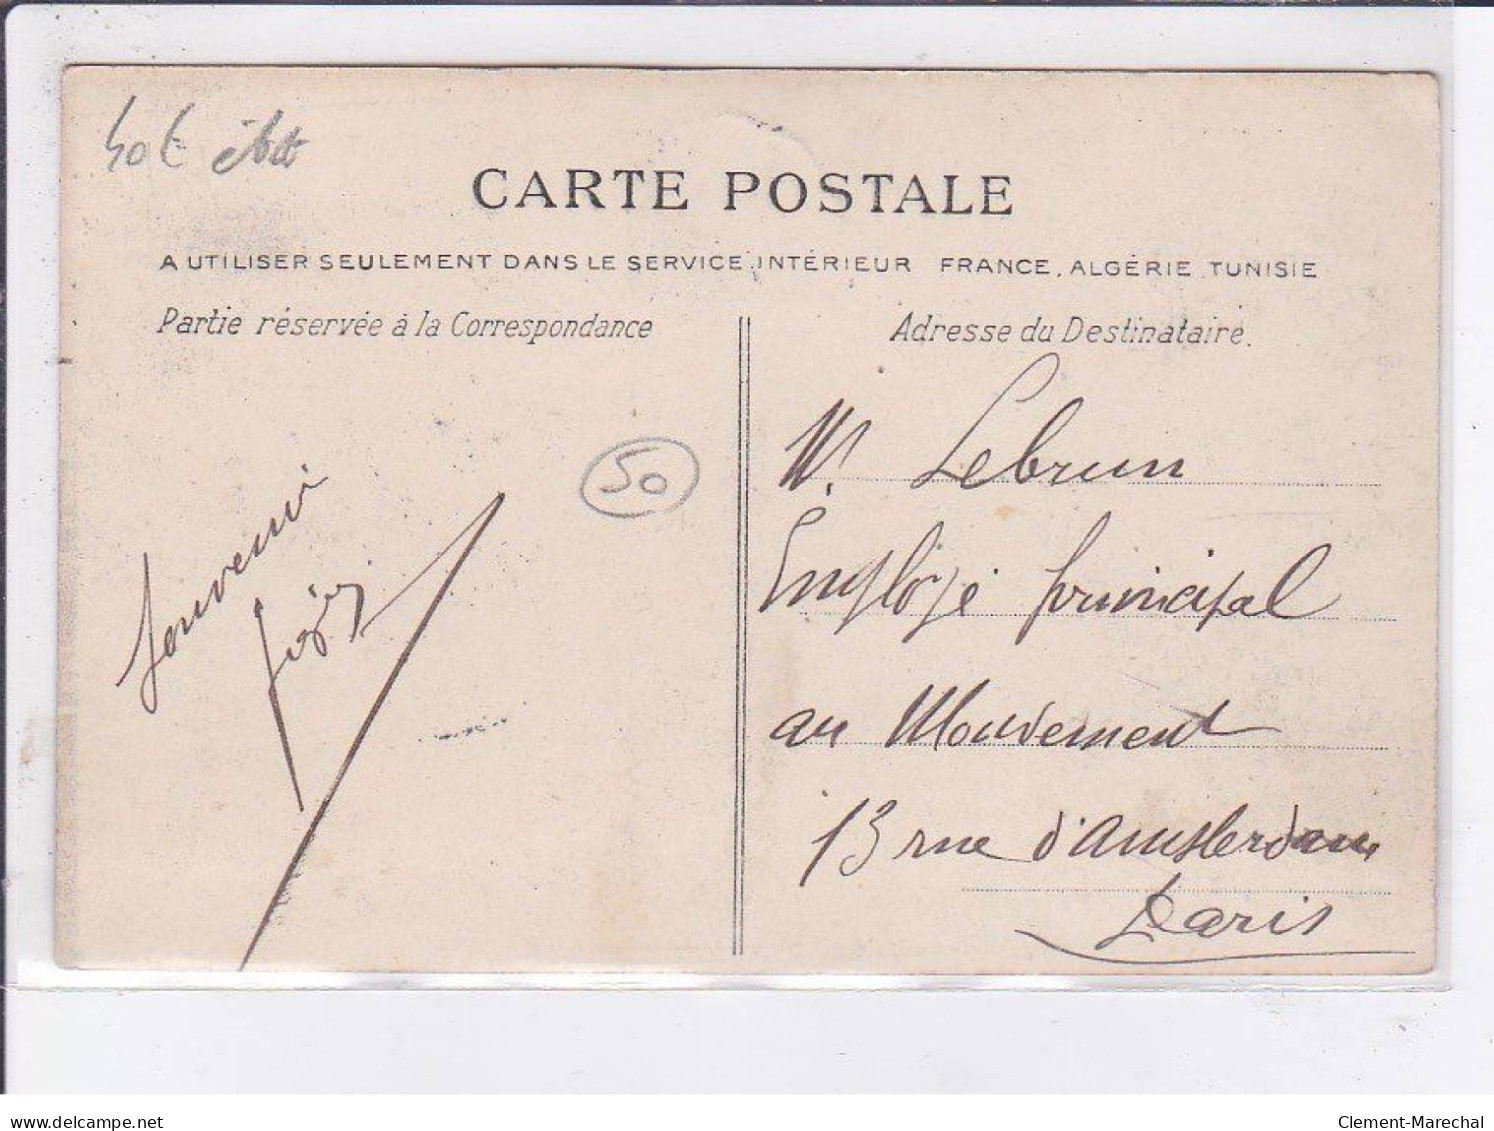 CARTE POSTALE
A UTILISER SEULEMENT DANS LE SERVICE INTÉRIEUR FRANCE, ALGÉRIE, TUNISIE
Partie réservée à la Correspondance
Souvenir
50
Adresse du Destinataire.
M. Lebrun
Employé principal
au Mouvement
13 rue d'Amsterdam
Paris
delcampe.net
Clement-Marechal